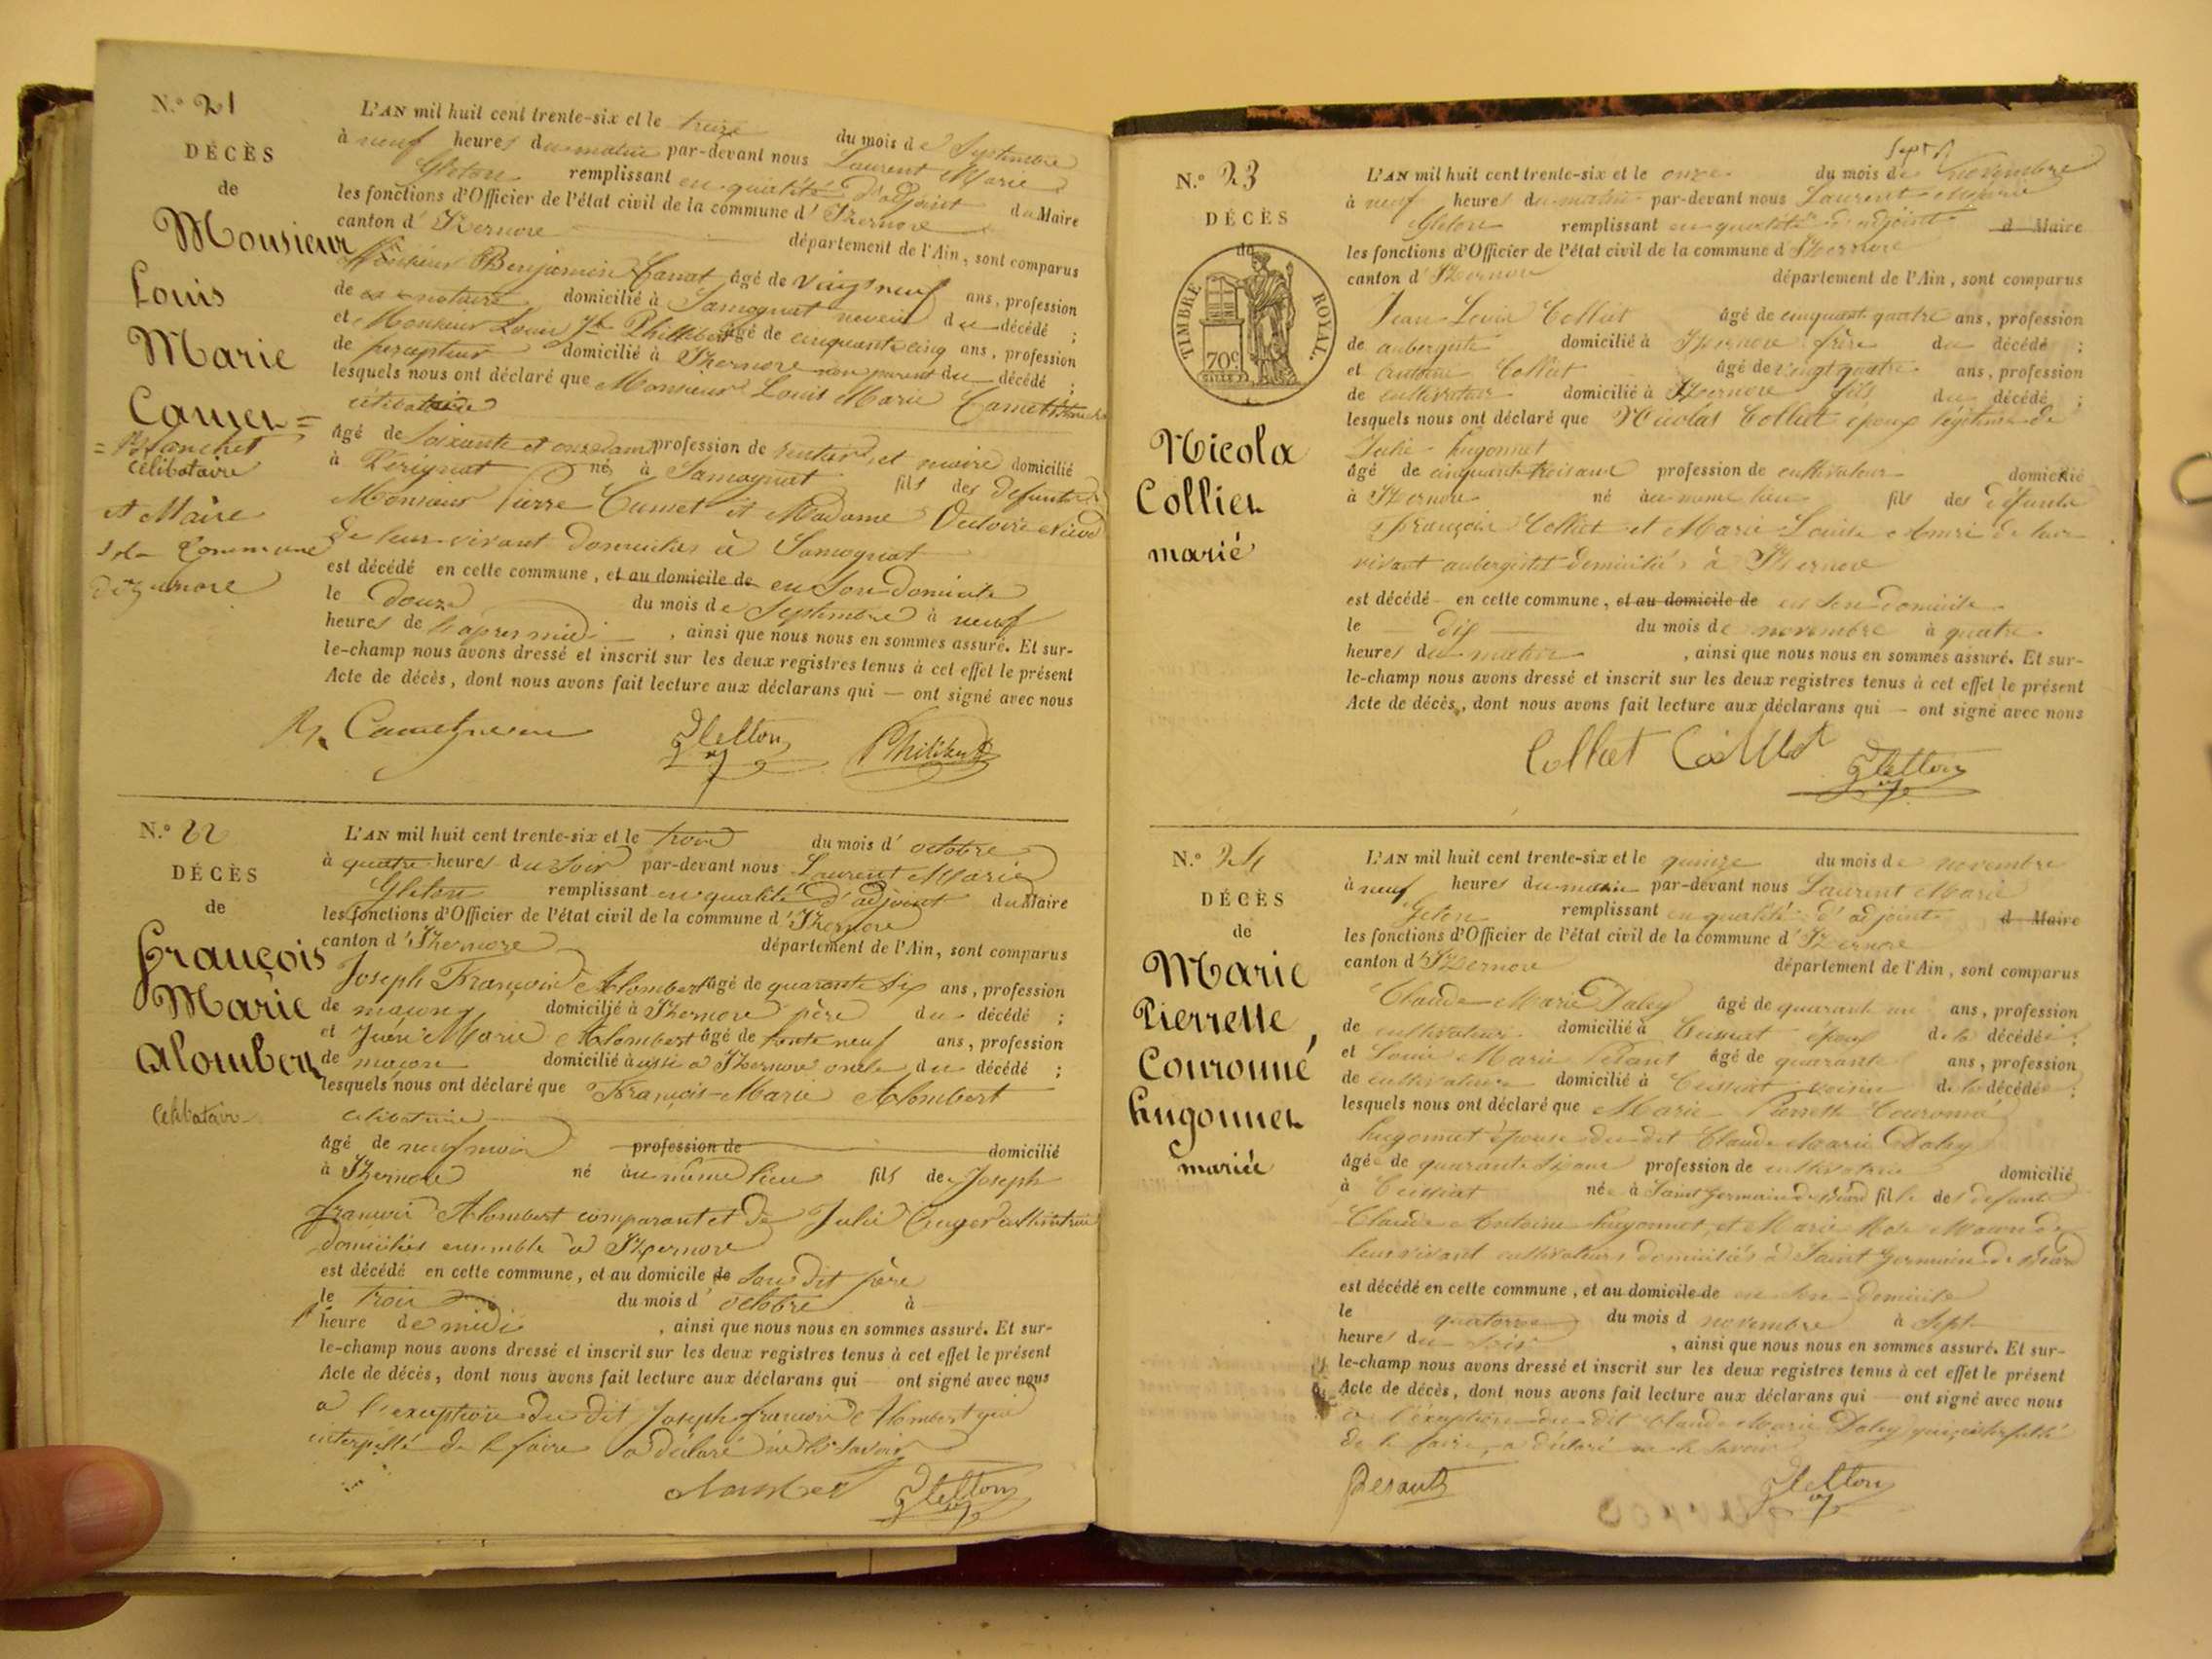 N.° 21
DÉCÈS
de
Monsieur
Louis
Marie
Camet =
= Blanchet
célibataire
et Maire
de la Commune
d'izernore
L'AN mil huit cent trente-six et le treize du mois de Septembre
à neuf heures du matin par-devant nous Laurent Marie
Gleton remplissant en qualité d'adjoint du Maire
les fonctions d'Officier de l'état civil de la commune d'Izernore
canton d'Izernore département de l'Ain, sont comparus
Monsieur Benjamin Camet âgé de vingt neuf ans, profession
de notaire domicilié à Samognat neveu du décédé ;
et Monsieur Louis Philibert âgé de cinquante cinq ans, profession
de percepteur domicilié à Izernore non parent du décédé ;
lesquels nous ont déclaré que Monsieur Louis Marie Camet Blanchet
célibataire
âgé de soixante et onze ans profession de rentier et maire domicilié
à Pérignat né à Samognat fils des défunts
Monsieur Pierre Camet et Madame Victoire
de leur vivant domiciliés à Samognat
est décédé en cette commune, et au domicile de en son domicile
le douze du mois de Septembre à neuf
heures de l'après midi , ainsi que nous nous en sommes assuré. Et sur-
le-champ nous avons dressé et inscrit sur les deux registres tenus à cet effet le présent
Acte de décès, dont nous avons fait lecture aux déclarans qui — ont signé avec nous
Gletton Philibert
N.° 22
DÉCÈS
de
François
Marie
Alombert
Célibataire
L'AN mil huit cent trente-six et le trois du mois d'octobre
à quatre heures du soir par-devant nous Laurent Marie
Gleton remplissant en qualité d'adjoint du Maire
les fonctions d'Officier de l'état civil de la commune d'Izernore
canton d'Izernore département de l'Ain, sont comparus
Joseph François Alombert âgé de quarante six ans, profession
de maçon domicilié à Izernore père du décédé ;
et Marie Alombert âgé de trente neuf ans, profession
de maçon domicilié aussi à Izernore oncle du décédé ;
lesquels nous ont déclaré que François Marie Alombert
célibataire
âgé de neuf mois profession de domicilié
à Izernore né au même lieu fils de Joseph
françois Alombert comparant et de Julie cultivatrice
domiciliés ensemble à Izernore
est décédé en cette commune, et au domicile de sondit père
le trois du mois d'octobre à
1 heure de midi , ainsi que nous nous en sommes assuré. Et sur-
le-champ nous avons dressé et inscrit sur les deux registres tenus à cet effet le présent
Acte de décès, dont nous avons fait lecture aux déclarans qui — ont signé avec nous
à l'exception du dit Joseph françois Alombert qui
interpellé de le faire a déclaré ne le savoir
Alombert Gletton
N.° 23
DÉCÈS
de
TIMBRE ROYAL.
70c
Nicola
Colliet
marié
L'AN mil huit cent trente-six et le onze du mois de novembre
à neuf heures du matin par-devant nous Laurent Marie
Gleton remplissant en qualité d'adjoint d Maire
les fonctions d'Officier de l'état civil de la commune d'Izernore
canton d'Izernore département de l'Ain, sont comparus
Jean Louis Colliet âgé de cinquante quatre ans, profession
de aubergiste domicilié à Izernore frère du décédé ;
et Antoine Colliet âgé de vingt quatre ans, profession
de cultivateur domicilié à Izernore fils du décédé ;
lesquels nous ont déclaré que Nicolas Colliet époux légitime de
Julie hugonnet
âgé de cinquante trois ans profession de cultivateur domicilié
à Izernore né au même lieu fils des défunts
françois Colliet et Marie Louise de leur
vivant aubergistes domiciliés à Izernore
est décédé en cette commune, et au domicile de en son domicile
le dix du mois de novembre à quatre
heures du matin , ainsi que nous nous en sommes assuré. Et sur-
le-champ nous avons dressé et inscrit sur les deux registres tenus à cet effet le présent
Acte de décès, dont nous avons fait lecture aux déclarans qui — ont signé avec nous
Colliet Colliet Gletton
N.° 24
DÉCÈS
de
Marie
Pierrette
Couronné
hugonnet
mariée
L'AN mil huit cent trente-six et le quinze du mois de novembre
à neuf heures du matin par-devant nous Laurent Marie
Gleton remplissant en qualité d'adjoint d Maire
les fonctions d'Officier de l'état civil de la commune d'Izernore
canton d'Izernore département de l'Ain, sont comparus
Claude Marie Daley âgé de quarante un ans, profession
de cultivateur domicilié à Ceissiat époux de la décédée ;
et Louis Marie âgé de quarante ans, profession
de cultivateur domicilié à Ceissiat voisin de la décédée ;
lesquels nous ont déclaré que Marie Pierrette Couronné
hugonnet épouse du dit Claude Marie Daley
âgée de quarante six ans profession de cultivatrice domicilié
à Ceissiat née à Saint Germain de Béard fille des défunts
Claude Antoine hugonnet et Marie de
leur vivant cultivateurs domiciliés à Saint Germain de Béard
est décédé en cette commune, et au domicile de en son domicile
le quatorze du mois d novembre à sept
heures du soir , ainsi que nous nous en sommes assuré. Et sur-
le-champ nous avons dressé et inscrit sur les deux registres tenus à cet effet le présent
Acte de décès, dont nous avons fait lecture aux déclarans qui — ont signé avec nous
à l'exception du dit Claude Marie Daley qui, interpellé
de le faire, a déclaré ne le savoir
Gletton